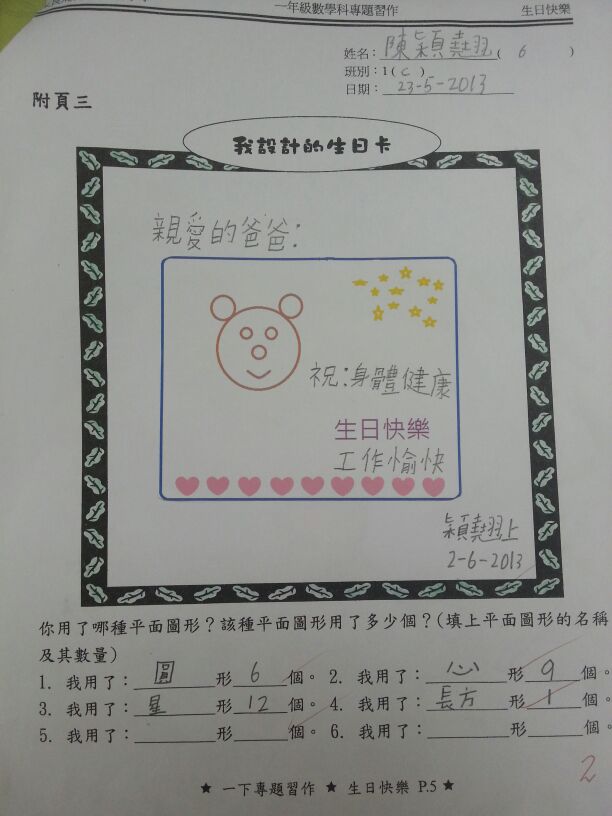 一年級數學科專題習作 生日快樂
姓名：陳穎堯翌( 6 )
班別：1( C )
日期：23-5-2013
附頁三
我設計的生日卡
親愛的爸爸：
祝：身體健康
生日快樂
工作愉快
上
2-6-2013
你用了哪種平面圖形？該種平面圖形用了多少個？(填上平面圖形的名稱
及其數量)
1. 我用了：圓形6個。 2. 我用了：心形9個。
3. 我用了：星形12個。 4. 我用了：長方形1個。
5. 我用了：______形______個。 6. 我用了：______形______個。
2
★ 一下專題習作 ★ 生日快樂 P.5 ★